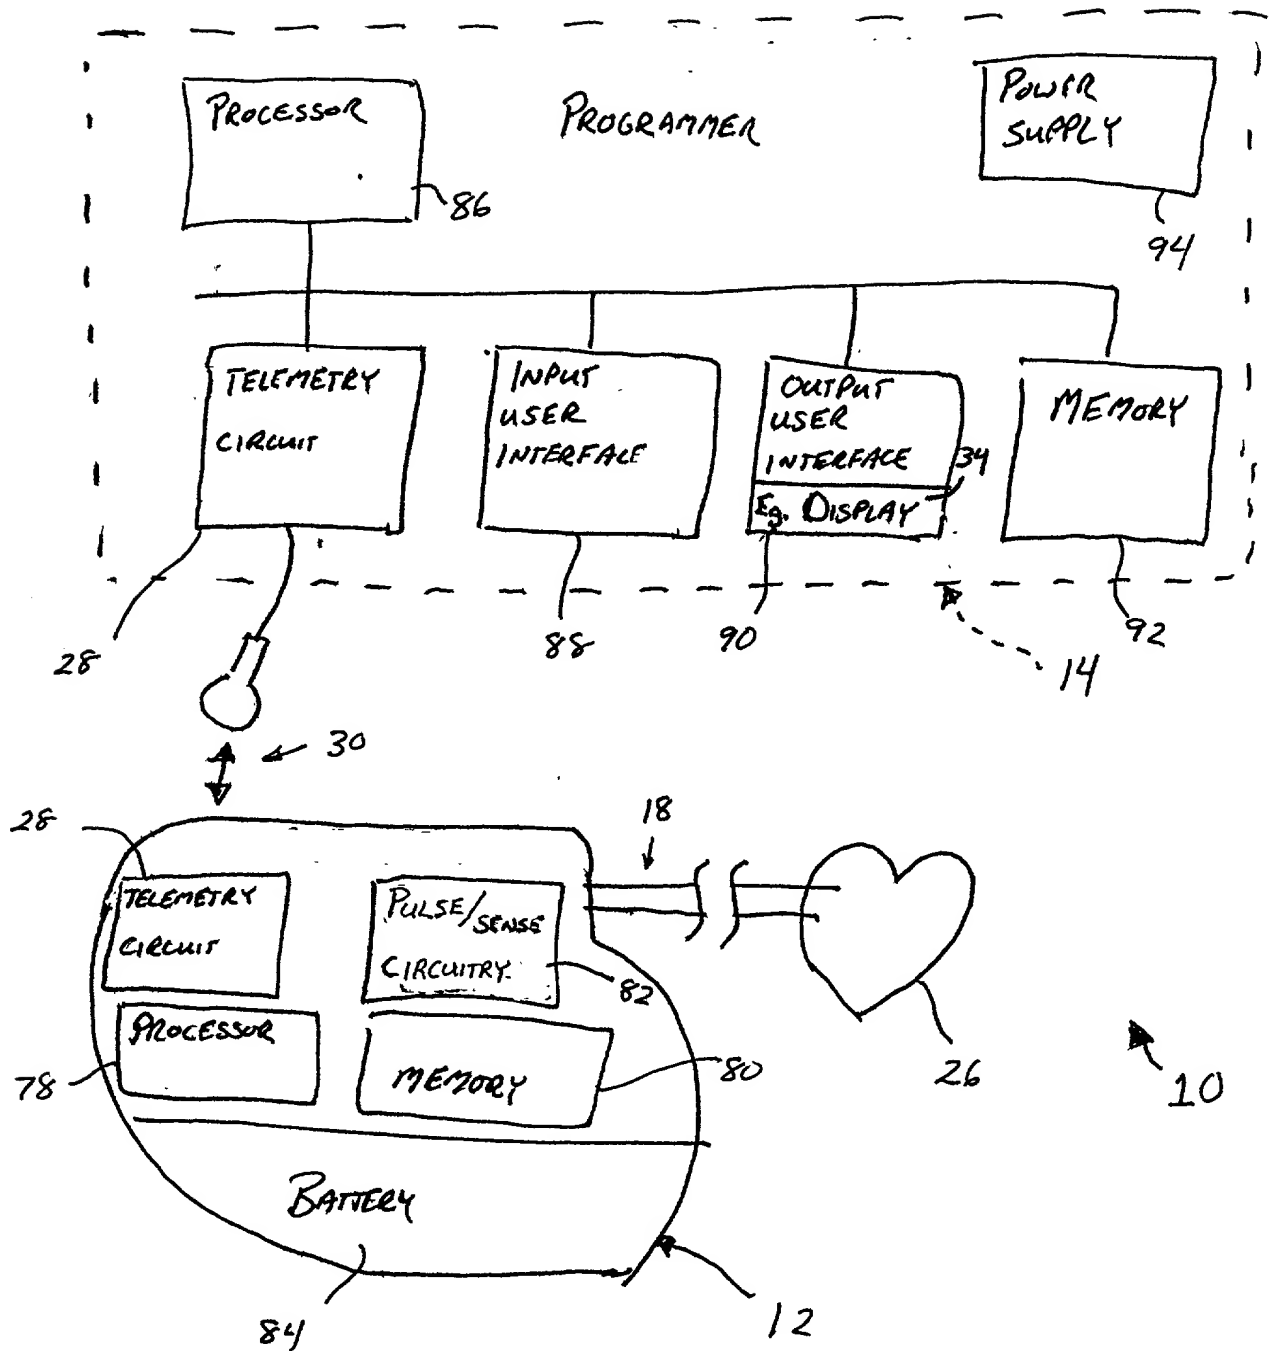 PROCESSOR
PROGRAMMER
POWER
SUPPLY
86
94
TELEMETRY
CIRCUIT
INPUT
USER
INTERFACE
OUTPUT
USER
INTERFACE
34
Eg. DISPLAY
MEMORY
28
88
90
14
92
30
28
18
TELEMETRY
CIRCUIT
PULSE/SENSE
CIRCUITRY
82
PROCESSOR
78
MEMORY
80
26
10
BATTERY
84
12